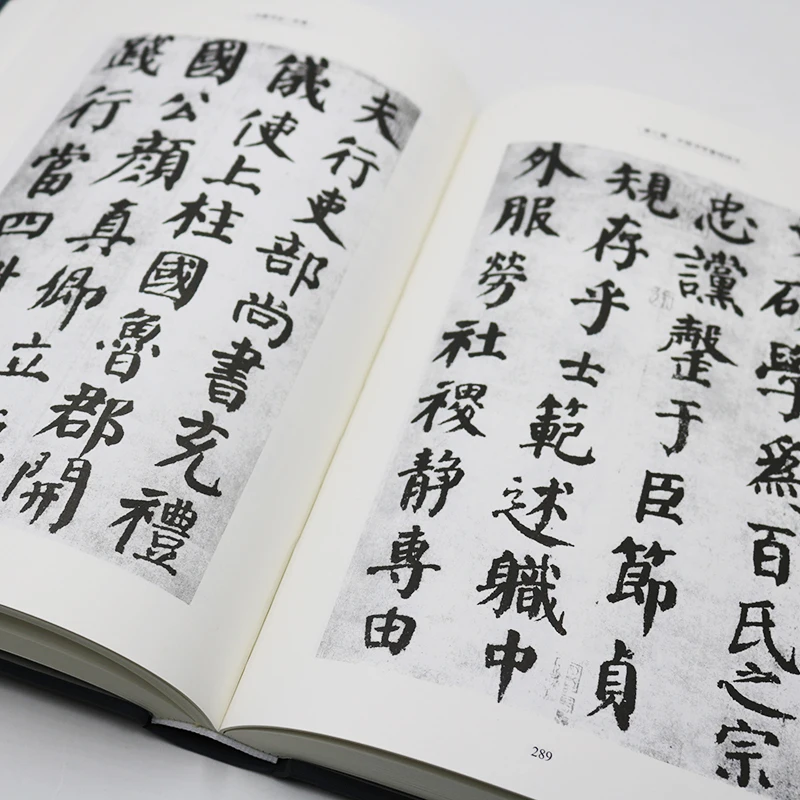 夫行吏部尚書充禮
儀使上柱國魯郡開
國公顏真卿立
踐行當四
碩學爲百氏之宗
忠讜罄于臣節貞
規存乎士範述職中
外服勞社稷静專由
289